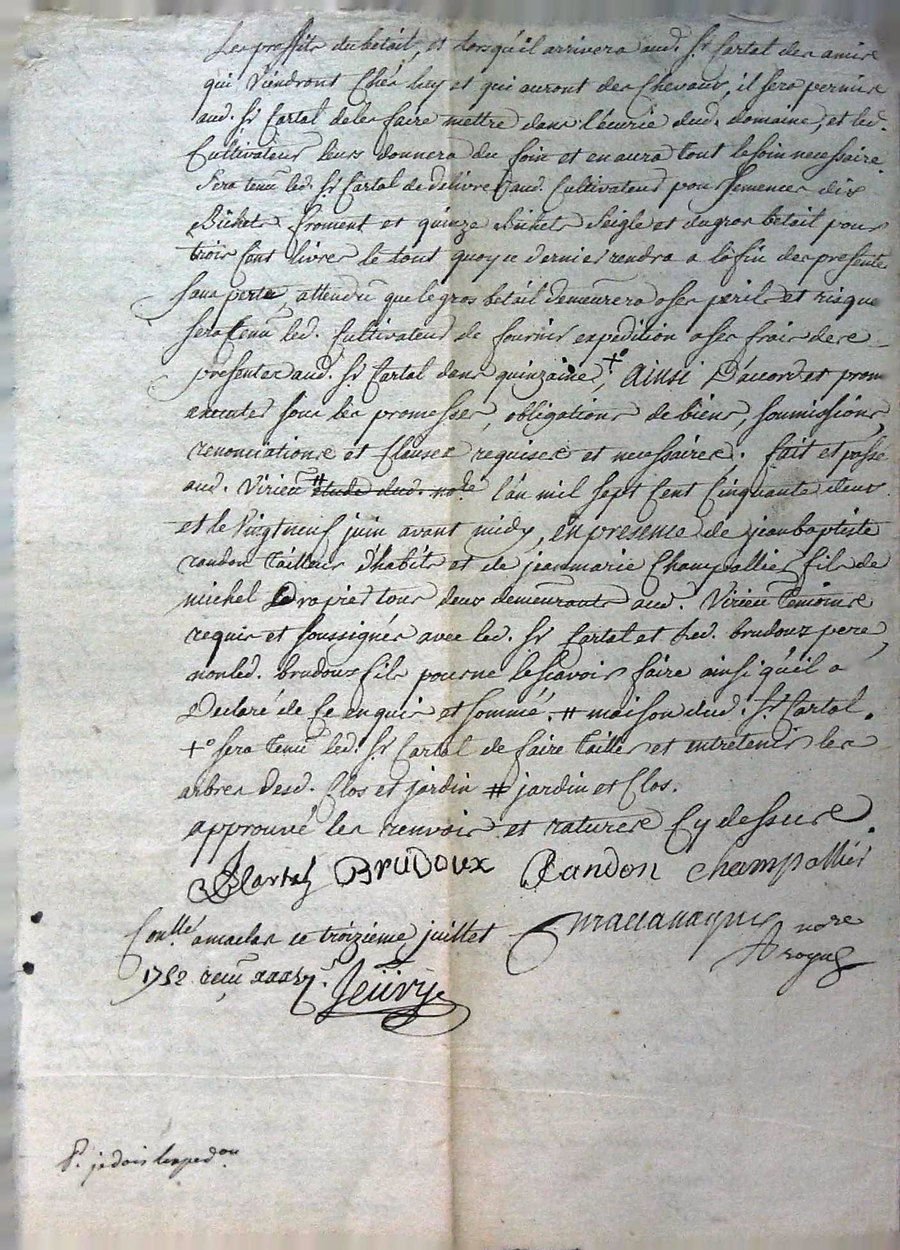 Les proffits du betail, et lorsqu'il arrivera aud. Sr Cartal des amis
qui viendront chés luy et qui auront des chevaux, il sera permis
aud. Sr Cartal de les faire mettre dans l'ecurie dud. domaine, et led.
Cultivateur leurs donnera du foin et en aura tout le soin necessaire
Sera tenu led. Sr Cartal de delivrer aud. Cultivateur pour semences dix
Bichets froment et quinze Bichets seigle et du gros betail pour
trois cent livres le tout quoy ce dernier rendra a la fin des presentes
sans perte, attendu que le gros betail demeurera a ses perils et risque
sera tenu led. Cultivateur de fournir expedition a ses frais des
presentes aud. Sr Cartal dans quinzaine, +° Ainsi D'accord et prom
executer sous les promesses, obligations de biens, soumissions,
renonciations et clauses requises et necessaires. fait et passé
aud. Virieu # etude dud. nore l'an mil sept cent cinquante deux
et le vingtneuf juin avant midy, en presence de jean baptiste
randon tailleur d'habits et de jeanmarie Champallier fils de
michel Drapier tous deux demeurants aud. Virieu temoins
requis et soussignés avec led. Sr Cartal et led. brudoux pere,
non led. brudoux fils pour ne le scavoir faire ainsi qu'il a
Declaré de ce enquis et sommé. # maison dud. Sr Cartal.
+° sera tenu led. Sr Cartal de faire tailler et entretenir les
arbres desd. Clos et jardin # jardin et Clos.
approuvé les renvois et ratures cy dessus.
Cartal BRUDOUX Randon Champallier
nore
royal
Conllé a maclas ce troizieme juillet
1752 recu
P. je dois l'exped.on